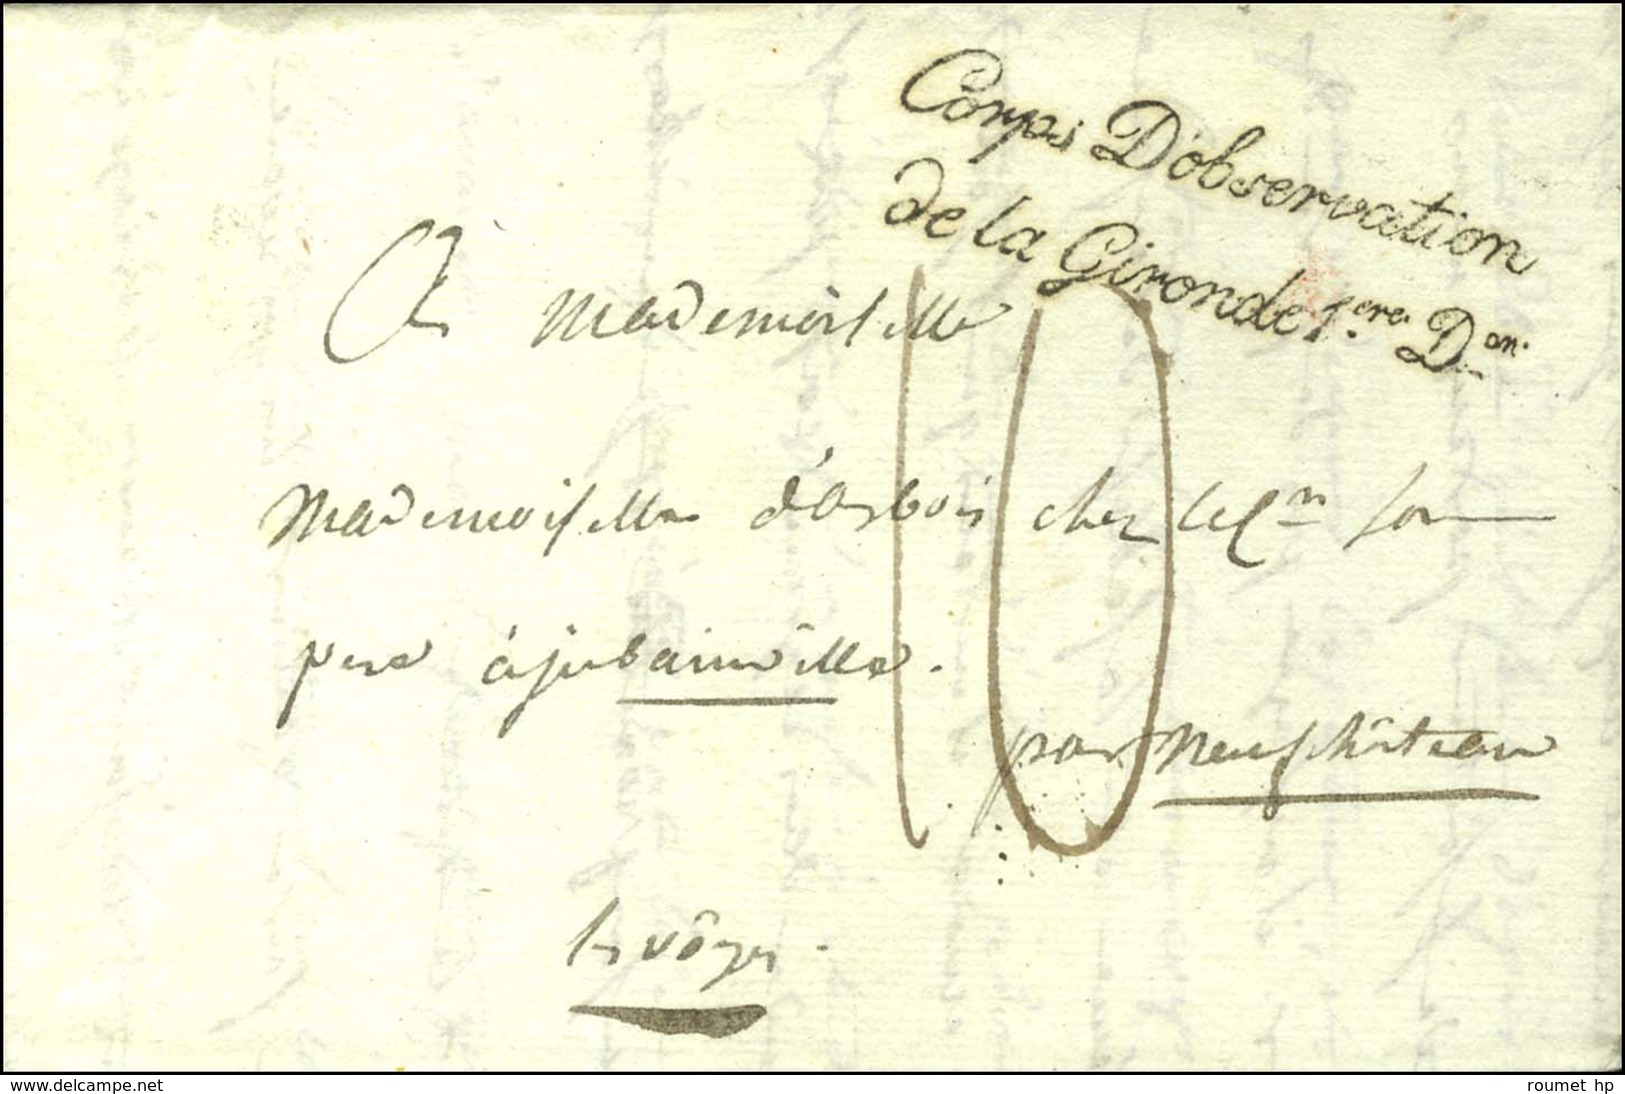 Corps D'observation
de la Gironde 1.ere D.on
A Mademoiselle
10
Mademoiselle d'arbois chez son
pere à jubainville.
par neufchâteau
les vôges.
www.delcampe.net
roumet hp